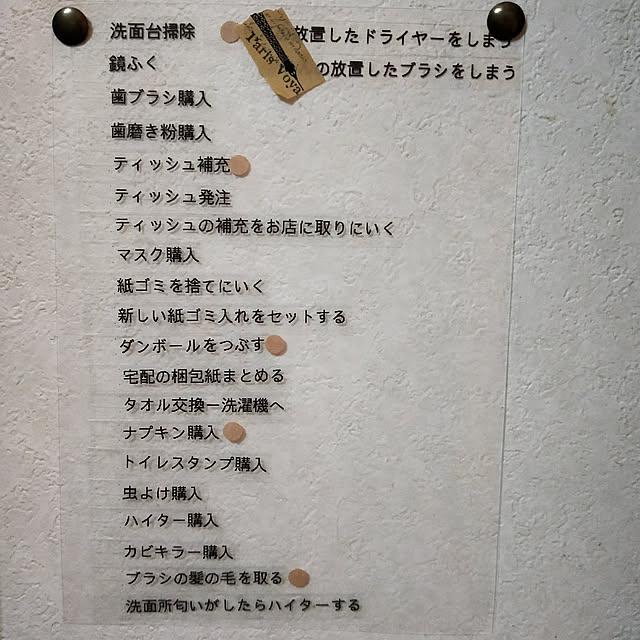 洗面台掃除
放置したドライヤーをしまう
鏡ふく
の放置したブラシをしまう
Paris Voya
歯ブラシ購入
歯磨き粉購入
ティッシュ補充
ティッシュ発注
ティッシュの補充をお店に取りにいく
マスク購入
紙ゴミを捨てにいく
新しい紙ゴミ入れをセットする
ダンボールをつぶす
宅配の梱包紙まとめる
タオル交換ー洗濯機へ
ナプキン購入
トイレスタンプ購入
虫よけ購入
ハイター購入
カビキラー購入
ブラシの髪の毛を取る
洗面所匂いがしたらハイターする